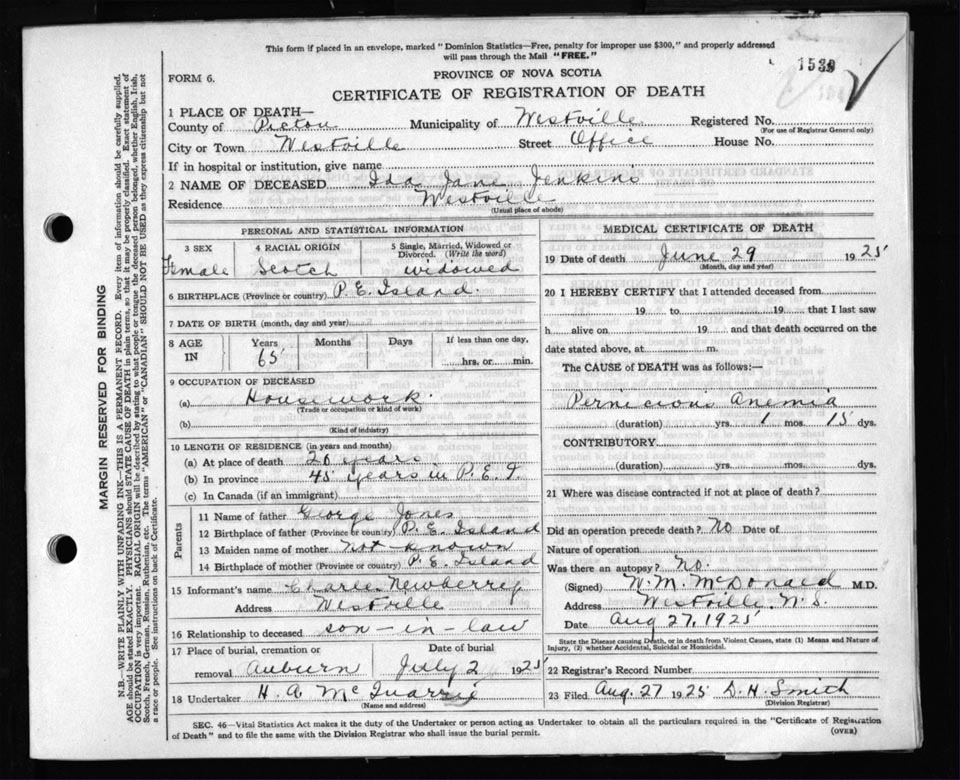 This form if placed in an envelope, marked "Dominion Statistics—Free, penalty for improper use $300," and properly addressed
will pass through the Mail "FREE."
1539
FORM 6.
PROVINCE OF NOVA SCOTIA
CERTIFICATE OF REGISTRATION OF DEATH
1 PLACE OF DEATH—
County of Pictou Municipality of Westville Registered No.
(For use of Registrar General only)
City or Town Westville Street Office House No.
If in hospital or institution, give name
2 NAME OF DECEASED Ida Jane Jenkins
Residence Westville
(Usual place of abode)
PERSONAL AND STATISTICAL INFORMATION
3 SEX 4 RACIAL ORIGIN 5 Single, Married, Widowed or
Divorced. (Write the word)
Female Scotch widowed
6 BIRTHPLACE (Province or country) P. E. Island.
7 DATE OF BIRTH (month, day and year)
8 AGE IN Years Months Days If less than one day,
65 hrs. or min.
9 OCCUPATION OF DECEASED
(a) Housework.
(Trade or occupation or kind of work)
(b)
(Kind of industry)
10 LENGTH OF RESIDENCE (in years and months)
(a) At place of death 20 years
(b) In province 45 years in P. E. I.
(c) In Canada (if an immigrant)
Parents
11 Name of father George Jones
12 Birthplace of father (Province or country) P. E. Island
13 Maiden name of mother not known
14 Birthplace of mother (Province or country) P. E. Island
15 Informant's name Charle Newberry
Address Westville
16 Relationship to deceased son-in-law
17 Place of burial, cremation or Date of burial
removal Auburn July 2 1925
18 Undertaker H. A. McQuarrie
(Name and address)
MEDICAL CERTIFICATE OF DEATH
19 Date of death June 29 1925
(Month, day and year)
20 I HEREBY CERTIFY that I attended deceased from
19 to 19 that I last saw
h alive on 19 and that death occurred on the
date stated above, at m.
The CAUSE of DEATH was as follows:—
Pernicious Anemia
(duration) yrs. 1 mos. 15 dys.
CONTRIBUTORY
(duration) yrs. mos. dys.
21 Where was disease contracted if not at place of death?
Did an operation precede death? No Date of
Nature of operation
Was there an autopsy? No.
(Signed) W. M. McDonald M.D.
Address Westville, N.S.
Date Aug 27, 1925
State the Disease causing Death, or in death from Violent Causes, state (1) Means and Nature of
Injury, (2) whether Accidental, Suicidal or Homicidal.
22 Registrar's Record Number
23 Filed Aug. 27 1925 D. H. Smith
(Division Registrar)
SEC. 46—Vital Statistics Act makes it the duty of the Undertaker or person acting as Undertaker to obtain all the particulars required in the "Certificate of Registration
of Death" and to file the same with the Division Registrar who shall issue the burial permit.
(OVER)
MARGIN RESERVED FOR BINDING
N.B.—WRITE PLAINLY WITH UNFADING INK—THIS IS A PERMANENT RECORD. Every item of information should be carefully supplied.
AGE should be stated EXACTLY. PHYSICIANS should STATE CAUSE OF DEATH in plain terms, so that it may be properly classified. Exact statement of
OCCUPATION is very important. RACIAL ORIGIN will be described by stating to what people or tongue the deceased person belonged, whether English, Irish,
Scotch, French, German, Russian, Ruthenian, etc. The terms "AMERICAN" or "CANADIAN" SHOULD NOT BE USED as they express citizenship but not
a race or people. See instructions on back of Certificate.